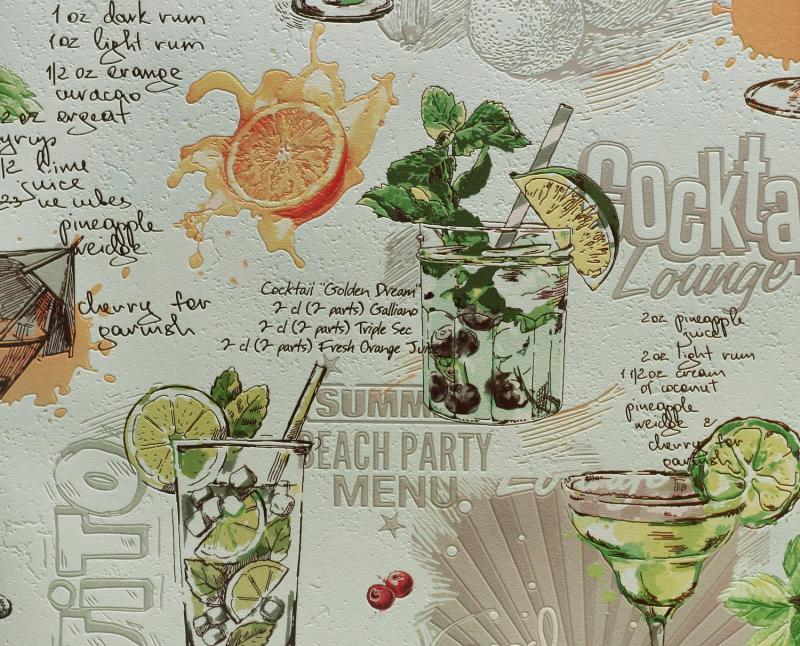 1 oz dark rum
1 oz light rum
1/2 oz orange
curacao
2 oz orgeat
syrup
1/2 lime
juice
ice cubes
pineapple
weidge
cherry for
garnish
Cocktail "Golden Dream"
2 cl (2 parts) Galliano
2 cl (2 parts) Triple Sec
2 cl (2 parts) Fresh Orange Jui
Cockta
Lounge
2oz pineapple
juice
2oz light rum
1 1/2oz cream
of coconut
pineapple
weidge &
cherry for
SUMM
BEACH PARTY
MENU
JITO